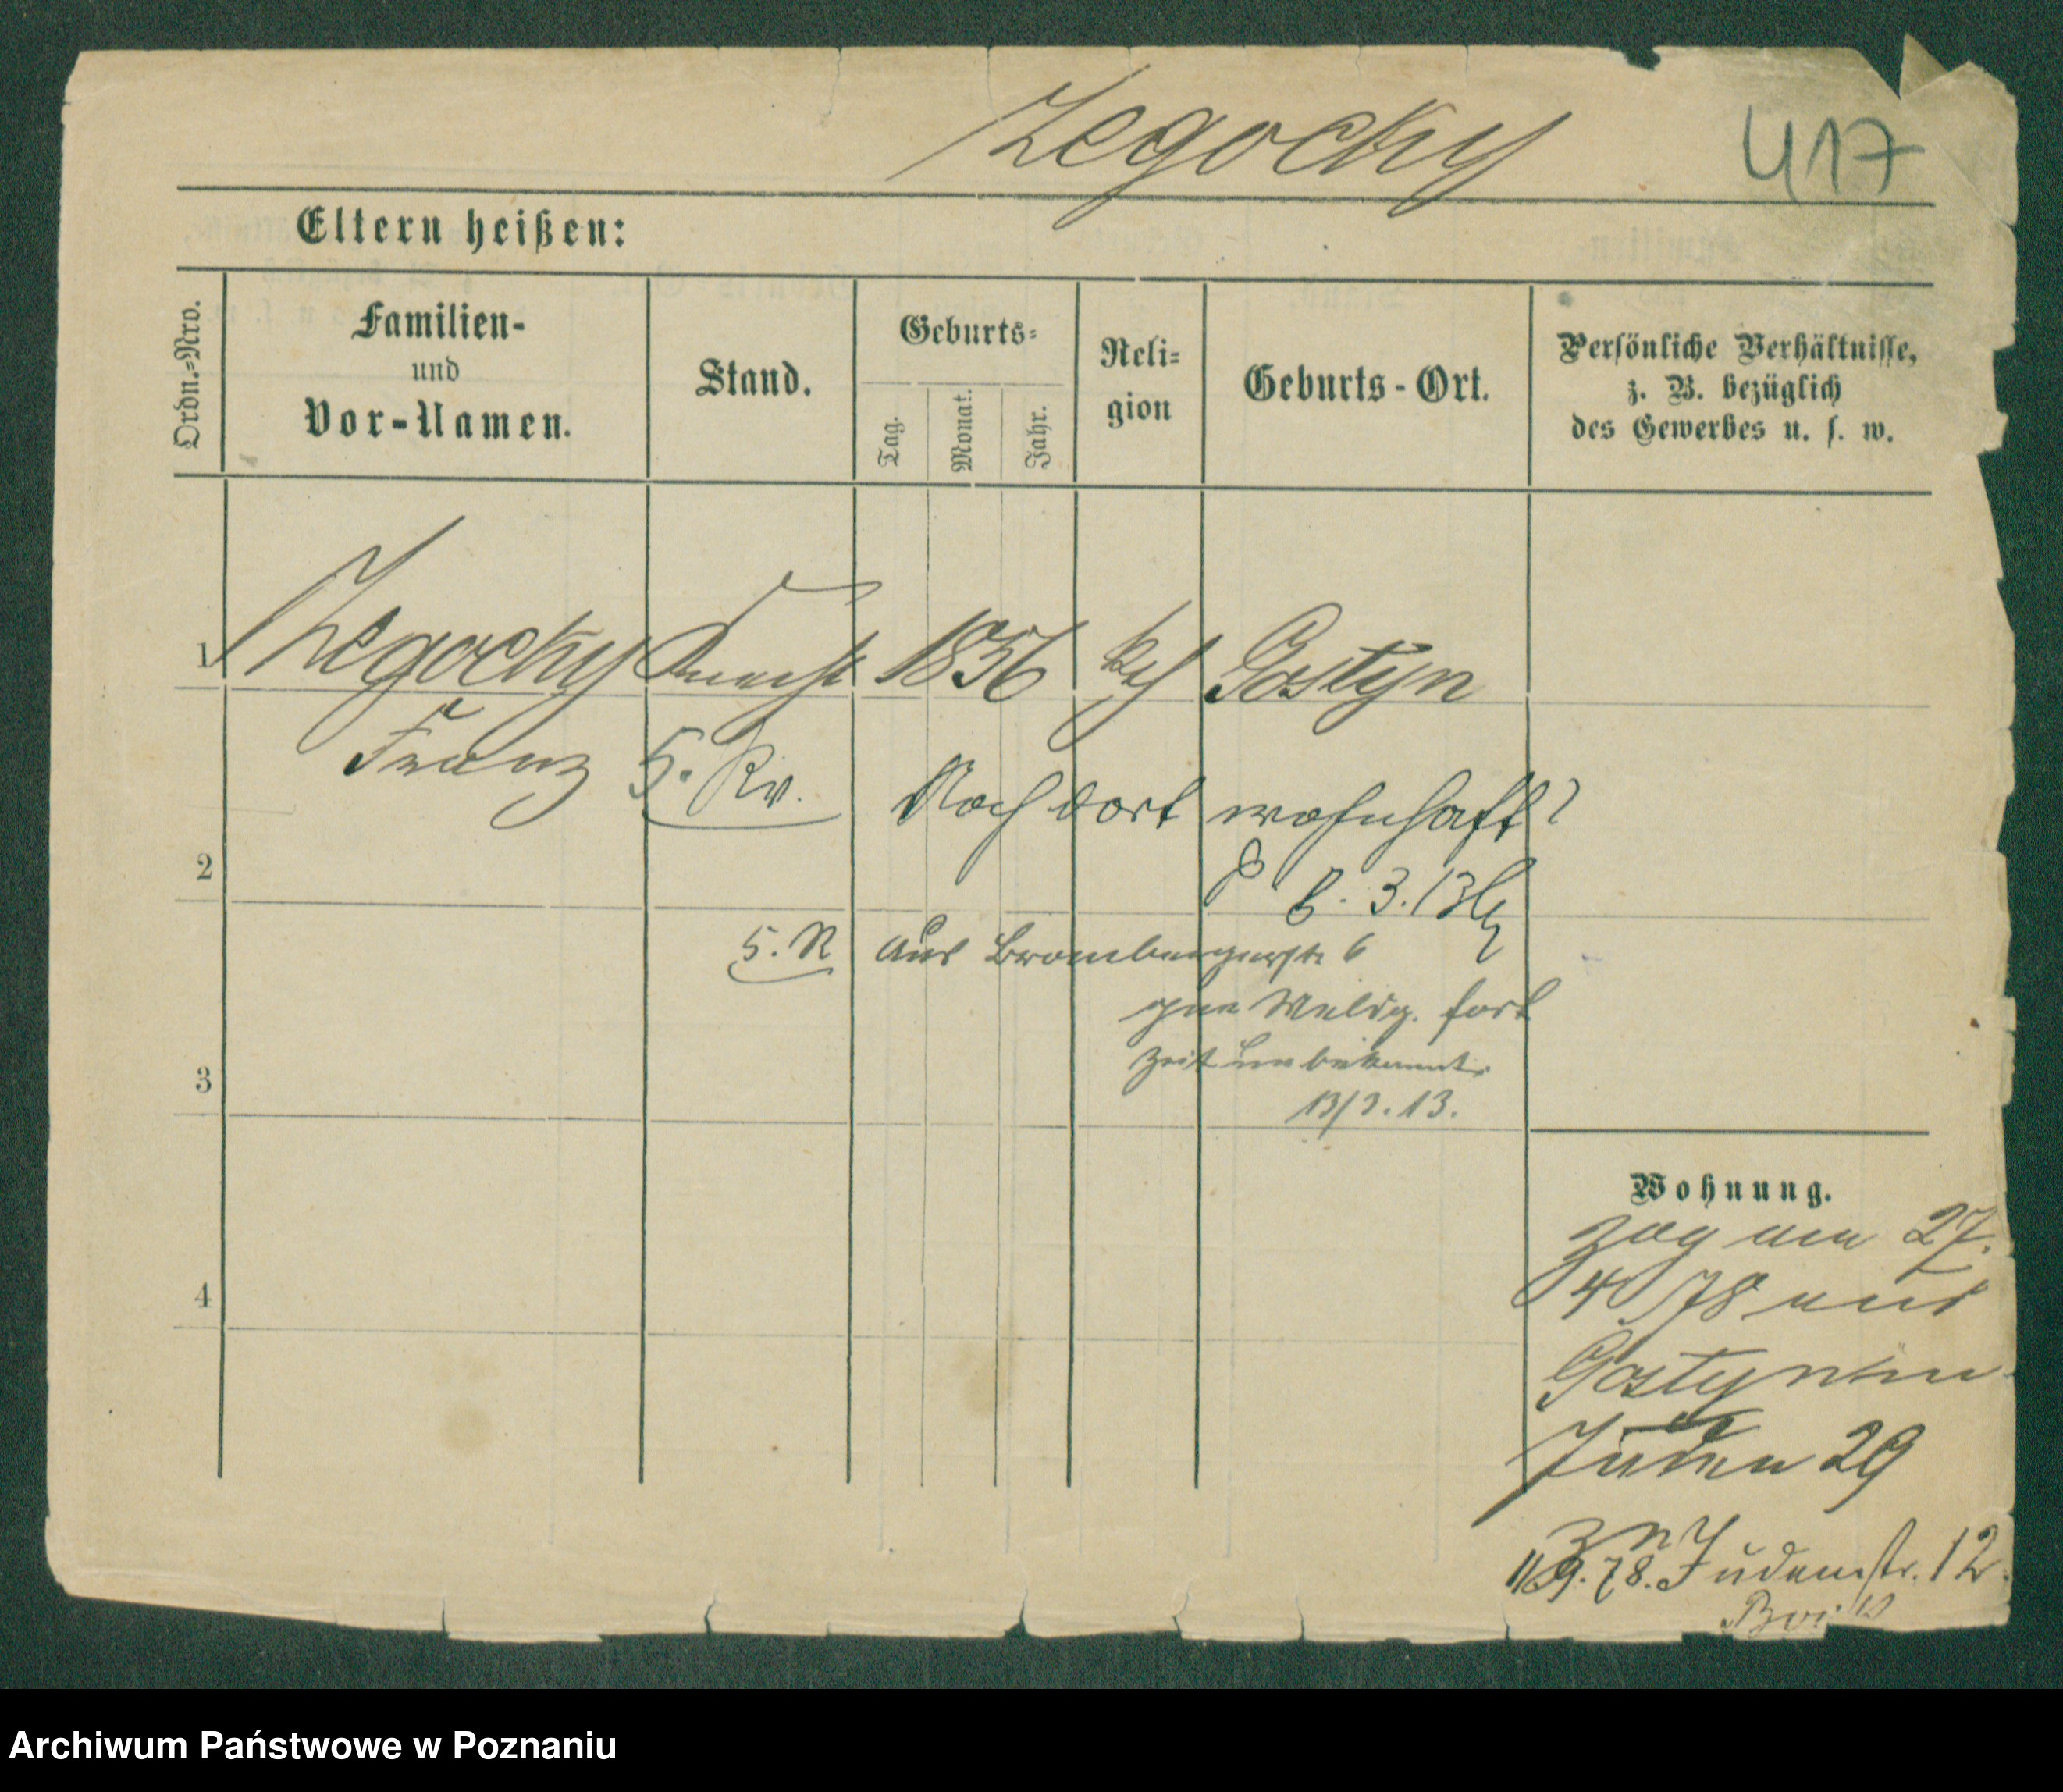 Zegocky
417
Eltern heißen:
Ordn.-Nro.
Familien-
und
Vor-Namen.
Stand.
Geburts-
Tag.
Monat.
Jahr.
Reli-
gion
Geburts-Ort.
Persönliche Verhältnisse,
z. B. bezüglich
des Gewerbes u. s. w.
1 Zegocky Knecht 1856 Gostyn
Franz 5. Rv. Noch dort wohnhaft?
2
8. 3. 13
5. R aus Brombergerstr 6
Meldg. fort
Zeit unbekannt.
3
13/3. 13.
Wohnung.
zog am 27.
4 78 aus
4
Gostyn
Juden 29
Z n
11/9. 78. Judenstr. 12.
Archiwum Państwowe w Poznaniu